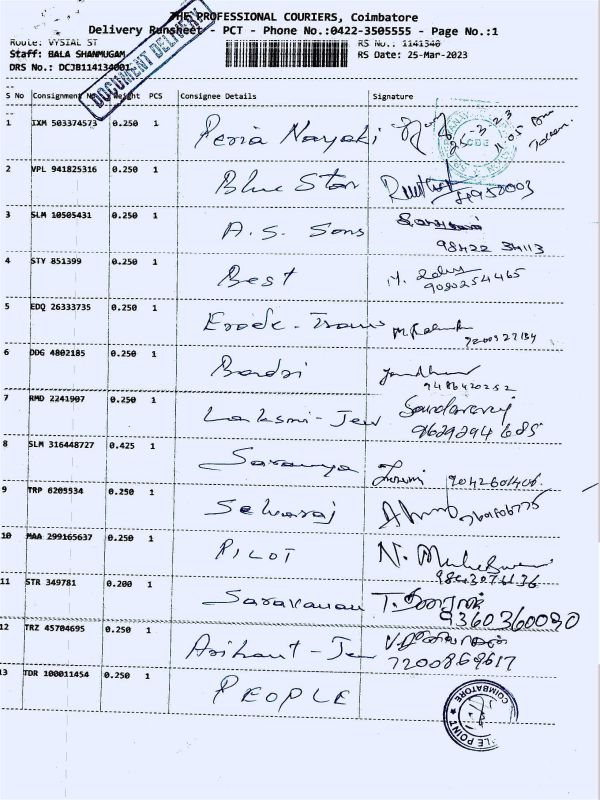 THE PROFESSIONAL COURIERS, Coimbatore
Delivery Runsheet - PCT - Phone No.:0422-3505555 - Page No.:1
Route: VYSIAL ST RS No.: 1141340
Staff: BALA SHANMUGAM RS Date: 25-Mar-2023
DRS No.: DCJB114134001
DOCUMENT DELIVERY
S No Consignment No Weight PCS Consignee Details Signature
1 IXM 503374573 0.250 1 Peria Nayaki 25-3-23
2 VPL 941825316 0.250 1 Blue Star
3 SLM 10505431 0.250 1 A.S. Sons
98422 34113
4 STY 851399 0.250 1 Best
9080254465
5 EDQ 26333735 0.250 1 Erode-Trans
6 DDG 4802185 0.250 1 Badri
9486420252
7 RMD 2241907 0.250 1 Laksmi-Jew Soundararaj
9629294685
8 SLM 316448727 0.425 1 Saranya
9042601406
9 TRP 6205534 0.250 1 Selvaraj
10 MAA 299165637 0.250 1 PILOT
11 STR 349781 0.200 1 Saravanan
9360360090
12 TRZ 45704695 0.250 1 Arihant-Jew
7200869617
13 TDR 100011454 0.250 1 PEOPLE COIMBATORE